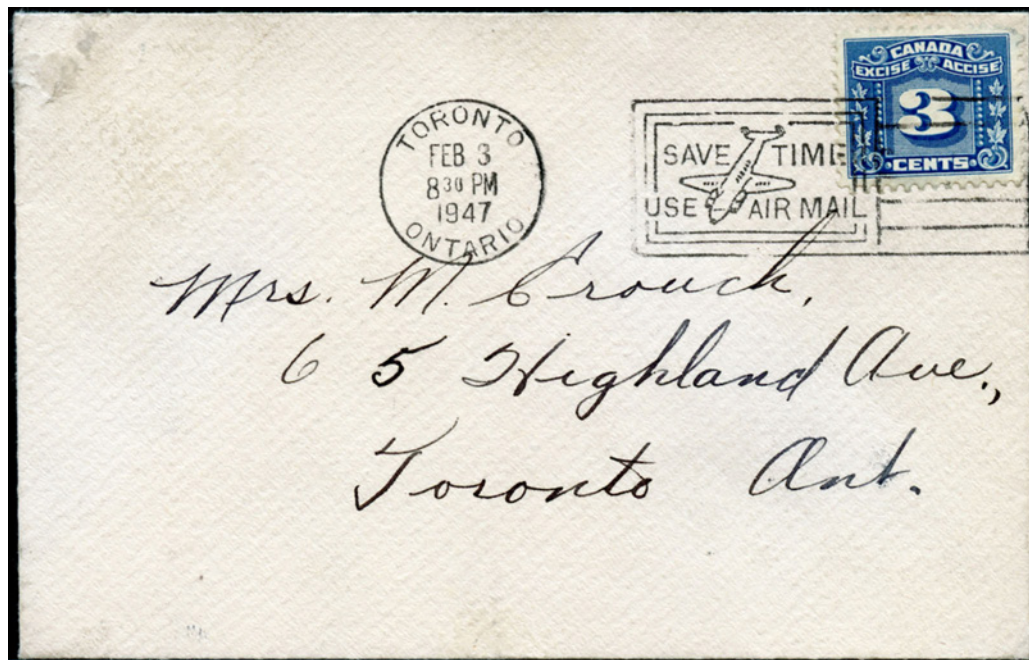 CANADA
EXCISE ACCISE
3
CENTS
TORONTO
FEB 3
8 30 PM
1947
ONTARIO
SAVE TIME
USE AIR MAIL
Mrs. M. Crouch,
65 Highland Ave.,
Toronto Ont.